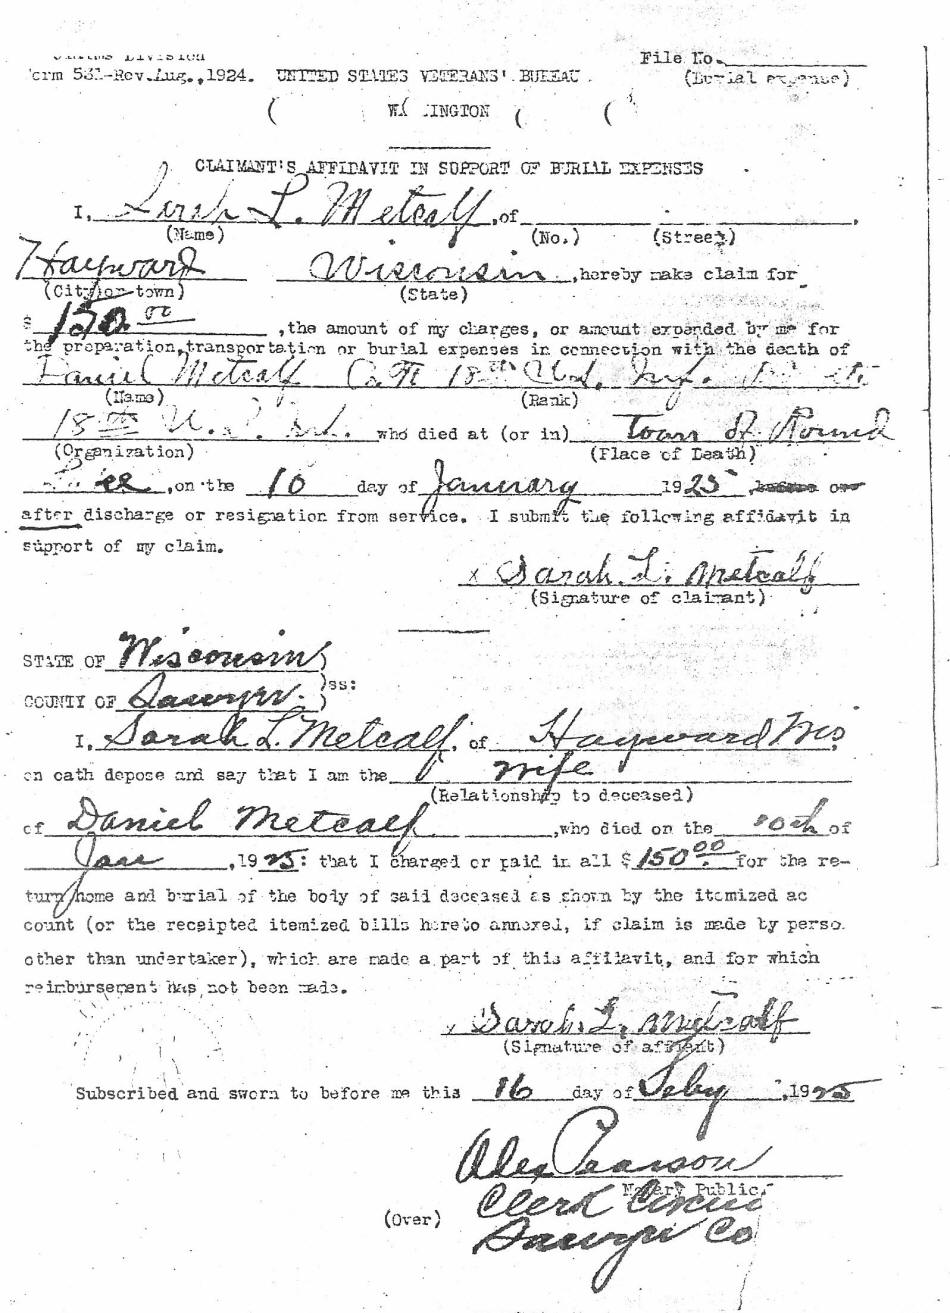 File No.
Form 531-Rev.Aug.,1924. UNITED STATES VETERANS' BUREAU
(Burial expense)
CLAIMANT'S AFFIDAVIT IN SUPPORT OF BURIAL EXPENSES
I, Sarah L. Metcalf, of
(Name) (No.) (Street)
Hayward Wisconsin, hereby make claim for
(City or town) (State)
$ 150.00, the amount of my charges, or amount expended by me for
the preparation, transportation or burial expenses in connection with the death of
Daniel Metcalf Co. 18th U.S. Inf.
(Name) (Rank)
18th U.S. who died at (or in) Town of Round
(Organization) (Place of Death)
on the 10 day of January 1925, before or
after discharge or resignation from service. I submit the following affidavit in
support of my claim.
x Sarah. L. Metcalf
(Signature of claimant)
STATE OF Wisconsin)
)ss:
COUNTY OF Sawyer.)
I, Sarah L. Metcalf, of Hayward Wis
on oath depose and say that I am the wife
(Relationship to deceased)
of Daniel Metcalf, who died on the 10th of
Jan, 1925: that I charged or paid in all $150.00 for the re-
turn home and burial of the body of said deceased as shown by the itemized ac
count (or the receipted itemized bills hereto annexed, if claim is made by perso
other than undertaker), which are made a part of this affidavit, and for which
reimbursement has not been made.
Sarah. L. Metcalf
(Signature of affiant)
Subscribed and sworn to before me this 16 day of Feby, 1925
Alex Pearson
Notary Public.
Clerk Circuit
(Over)
Sawyer Co